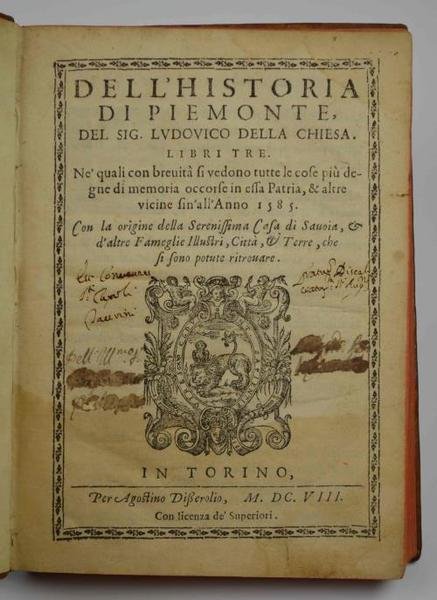 DELL'HISTORIA
DI PIEMONTE,
DEL SIG. LVDOVICO DELLA CHIESA.
LIBRI TRE.
Ne' quali con breuità ſi vedono tutte le coſe più de-
gne di memoria occorſe in eſſa Patria, & altre
vicine ſin'all'Anno 1585.
Con la origine della Sereniſſima Caſa di Sauoia, &
d'altre Fameglie Illuſtri, Città, & Terre, che
ſi ſono potute ritrouare.
Ex Conventu
Sti Caroli
Taurini
Dell'Ill.mo
IN TORINO,
Per Agoſtino Diſſerolio, M. DC. VIII.
Con licenza de' Superiori.